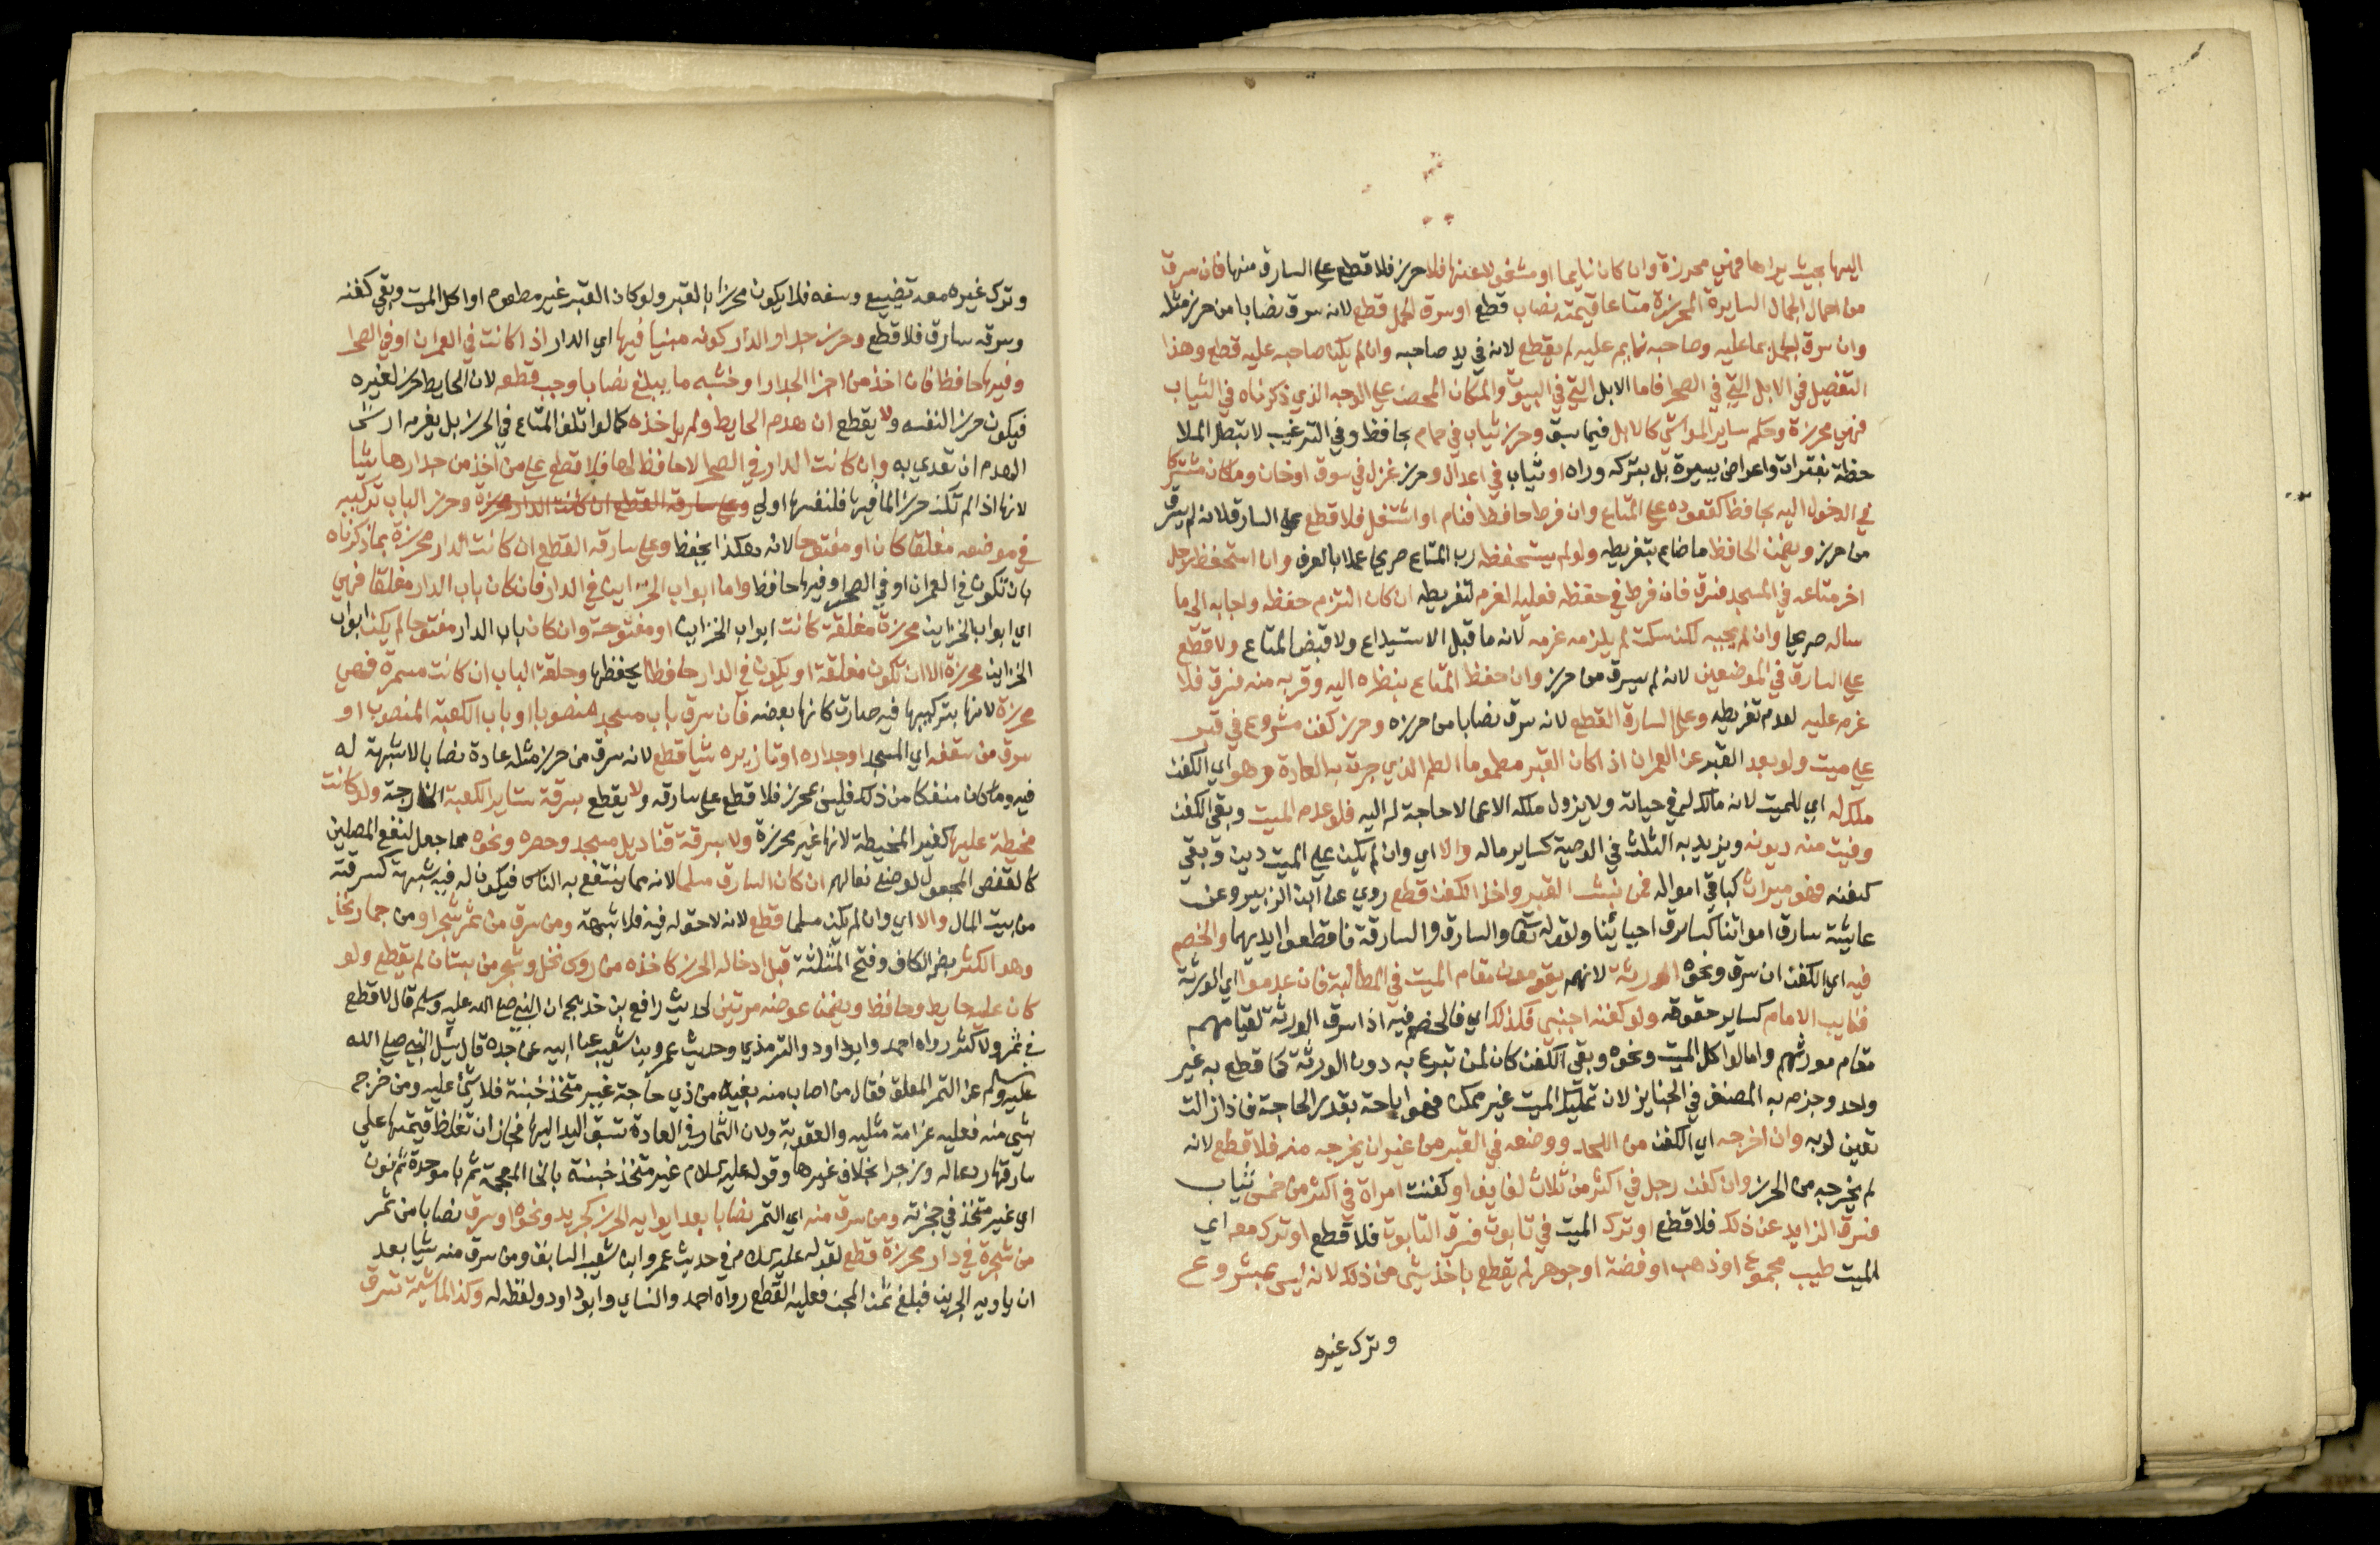 اليها بحيث يراها فهي محرزة وان كان نايما او مشغولا عنها فلا حرز فلا قطع علي السارق منها فان سرق
من احمال الجمال السايرة المحرزة متاعا قيمته نصاب قطع او سرق الحمل قطع لانه سرق نصابا من حرز مثله
وان سرق الجمل بما عليه وصاحبه نايم عليه لم يقطع لانه في يد صاحبه وان لم يكن صاحبه عليه قطع وهذا
التفصيل في الابل التي في الصحرا فاما الابل التي في البيوت والمكان المحصن علي الوجه الذي ذكرناه في الثياب
فهي محرزة وحكم ساير المواشي كالابل فيما سبق وحرز ثياب في حمام بحافظ وفي الترغيب لا تبطل الملا
حظة بفترات واعراض يسيرة بل بتركه وراه او ثياب في اعدال وحرز غزل في سوق او خان وما كان مشتركا
في الدخول اليه بحافظ كقعوده علي المتاع وان فرط حافظ فنام او اشتغل فلا قطع علي السارق لانه لم يسرق
من حرز ويضمن الحافظ ما ضاع بتفريطه ولو لم يستحفظه رب المتاع صريحا عملا بالعرف وان استحفظ رجل
اخر متاعه في المسجد فسرق فان فرط في حفظه فعليه الغرم لتفريطه ان كان التزم حفظه واجابه الي ما
ساله صريحا وان لم يجيبه لكن سكت لم يلزمه غرمه لانه ما قبل الاستيداع ولا قبض المتاع ولا قطع
علي السارق في الموضعين لانه لم يسرق من حرز وان حفظ المتاع بنظره اليه وقربه منه فسرق فلا
غرم عليه لعدم تفريطه وعلي السارق القطع لانه سرق نصابا من حرزه وحرز كفن مشروع في قبر
علي ميت ولو بعد القبر عن العمران اذا كان القبر مطموما الطم الذي جرت به العادة وهو اي الكفن
ملك له اي للميت لانه مالك له في حياته ولا يزول ملكه الا عما لا حاجة له اليه فلو عدم الميت وبقي الكفن
وفيت منه ديونه ويزيد به الثلث في الوصية كساير ماله والا اي وان لم يكن علي الميت دين وبقي
كفنه فهو ميراث كباقي امواله فمن نبش القبر واخذ الكفن قطع روي عن ابن الزبير وعن
عايشة سارق امواتنا كسارق احيائنا ولقوله تعالي والسارق والسارقة فاقطعوا ايديهما والخصم
فيه اي الكفن ان سرق ونحوه الورثة لانهم يقومون مقام الميت في المطالبة فان عدموا اي الورثة
فنايب الامام كساير حقوقه ولو كفنه اجنبي فكذلك اي فالخصم فيه اذا سرق الورثة لقيامهم
مقام مورثهم واما لو اكل الميت ونحوه وبقي الكفن كان لمن تبرع به دون الورثة كما قطع به غير
واحد وجزم به المصنف في الجنايز لان تمليك الميت غير ممكن فهو اباحة بقدر الحاجة فاذا زالت
تعين لربه وان اخرجه اي الكفن من اللحد ووضعه في القبر من غير ان يخرجه منه فلا قطع لانه
لم يخرجه من الحرز وان كفن رجل في اكثر من ثلاث لفايف او كفنت امراة في اكثر من خمس ثياب
فسرق الزايد عن ذلك فلا قطع او ترك الميت في تابوت فسرق التابوت فلا قطع او ترك معه اي
الميت طيب مجموع او ذهب او فضة او جوهر لم يقطع باخذ شي من ذلك لانه ليس بمشروع
وترك غيره
وترك غيره معه تضييع وسفه فلا يكون محرزا بالقبر ولو كان القبر غير مطموم او اكل الميت وبقي كفنه
وسرقه سارق فلا قطع وحرز جدار الدار كونه مبنيا فيها اي الدار اذا كانت في العمران او في الصحرا
وفيها حافظ فان اخذ من اجزا الجدار او خشبه ما يبلغ نصابا وجب قطعه لان الحايط حرز لغيره
فيكون حرزا لنفسه ولا يقطع ان هدم الحايط ولم ياخذه كما لو اتلف المتاع في الحرز بل يغرم ارش
الهدم ان تعدي به وان كانت الدار في الصحرا لا حافظ لها فلا قطع علي من اخذ من جدارها شيا
لانها اذا لم تكن حرزا لما فيها فلنفسها اولي وعلي سارقه القطع ان كانت الدار محرزة وحرز الباب تركيبه
في موضعه مغلقا كان او مفتوحا لانه هكذا يحفظ وعلي سارقه القطع ان كانت الدار محرزة بما ذكرناه
بان تكون في العمران او في الصحرا وفيها حافظ واما ابواب الخزاين في الدار فان كان باب الدار مغلقا فهي
اي ابواب الخزاين محرزة مغلقة كانت ابواب الخزاين او مفتوحة وان كان باب الدار مفتوحا لم يكن ابواب
الخزاين محرزة الا ان تكون مغلقة او يكون في الدار حافظا يحفظها وحلقة الباب ان كانت مسمرة فهي
محرزة لانها بتركيبها فيه صارت كانها بعضه فان سرق باب مسجد منصوبا او باب الكعبة المنصوب او
سرق من سقفه اي المسجد او جداره او تازيره شيا قطع لانه سرق من حرز مثله عادة نصابا لا شبهة له
فيه وما كان منفكا من ذلك فليس بمحرز فلا قطع علي سارقه ولا يقطع بسرقة ستاير الكعبة الخارجة ولو كانت
مخيطة عليها كغير المخيطة لانها غير محرزة ولا بسرقة قناديل مسجد وحصره ونحوه مما جعل لنفع المصلين
كالقفص المجعول لوضع نعالهم ان كان السارق مسلما لانه مما ينتفع به الناس فيكون له فيه شبهة كسرقته
من بيت المال والا اي وان لم يكن مسلما قطع لانه لا حق له فيه فلا شبهة ومن سرق من ثمر شجر او من جمار نخل
وهو الكثر بضم الكاف وفتح المثلثة قبل ادخاله الحرز كاخذه من روس نخل وشجر من بستان لم يقطع ولو
كان عليه حايط وحافظ ويضمن عوضه مرتين لحديث رافع بن خديج ان النبي صلي الله عليه وسلم قال لا قطع
في ثمر ولا كثر رواه احمد وابو داود والترمذي وحديث عمرو بن شعيب عن ابيه عن جده قال سئل النبي صلي الله
عليه وسلم عن الثمر المعلق فقال من اصاب منه بفيه من ذي حاجة غير متخذ خبنة فلا شي عليه ومن خرج
بشي منه فعليه غرامة مثليه والعقوبة ولان الثمار في العادة تسبق اليد اليها فجاز ان تغلظ قيمتها علي
سارقها ردعا له وزجرا بخلاف غيرها وقوله عليه السلام غير متخذ خبنة بالخا المعجمة ثم با موحدة ثم نون
اي غير متخذ في حجزته ومن سرق منه اي الثمر نصابا بعد ايوايه الحرز كجرين ونحوه او سرق نصابا من ثمر
من شجرة في دار محرزة قطع لقوله عليه السلام في حديث عمرو ابن شعيب السابق ومن سرق منه شيا بعد
ان ياويه الجرين فبلغ ثمن المجن فعليه القطع رواه احمد والنساي وابو داود ولفظه له وكذا الماشية تسرق